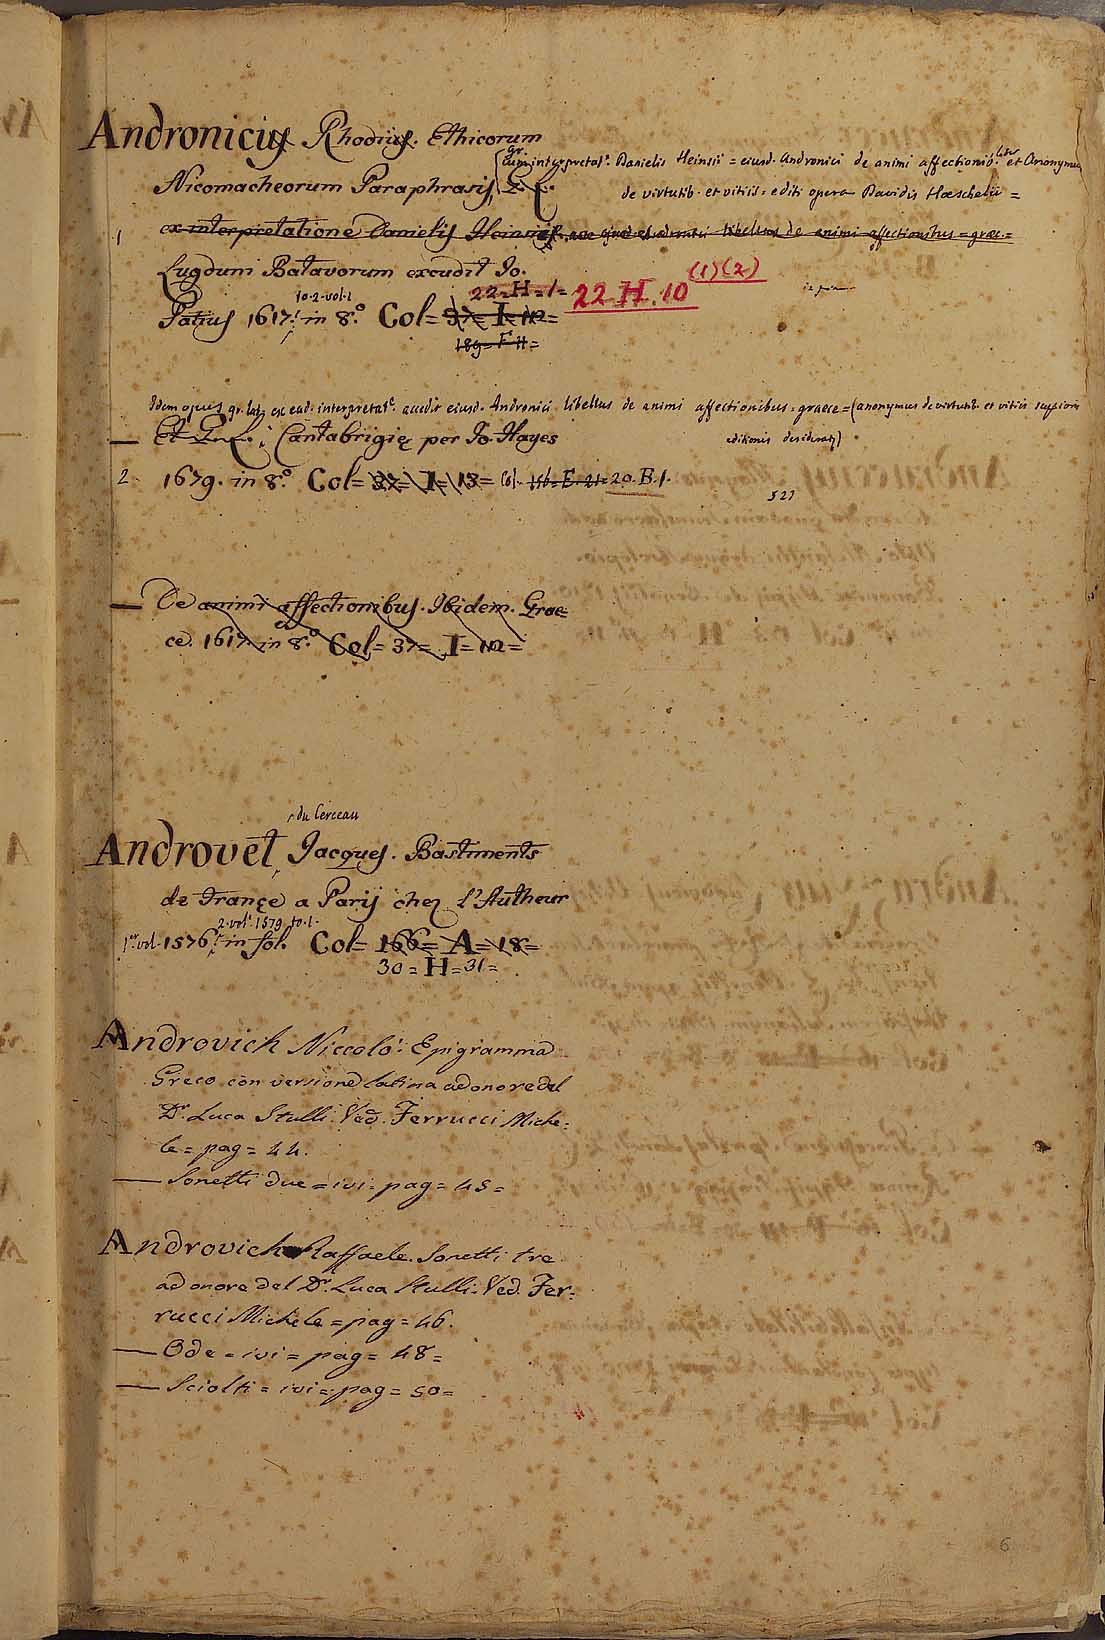 Andronicus Rhodius. Ethicorum
Gr.
cum interpretat.e Danielis Heinsii = eiusd. Andronici de animi affectionib. liber et Anonymus
Nicomacheorum Paraphrasis,
de virtutib. et vitiis: editi opera Davidis Hoeschelii =
1 ex interpretatione Danielis Heinsii libellus de animi affectionibus = graec. =
Lugduni Batavorum excudit Jo.
(1) (2)
22 = H = 1 = 22 H. 10
10. 2. vol. 1
Patius 1617. in 8.o Col = 37 = I = 12 =
189 = F 11 =
Idem opus gr. lat. ex ead. interpretat.e accedit eiusd. Andronici libellus de animi affectionibus = graece = (anonymus de virtutib. et vitiis
— Et Cantabrigię per Jo. Hayes
editionis desideratr)
2 1679. in 8.o Col = 37 = I = 13 = Col. 156 = E. 21 = 20. B. 1.
521
— De animi affectionibus. Ibidem. Grae=
ce. 1617. in 8.o Col = 37 = I = 12 =
du Cerceau
Androvet Jacques. Bastiments
de France a Paris chez L'Autheur
2. vol. 1579 to. 1.
1.er vol. 1576. in fol. Col = 166 = A = 18 =
30 = H = 31 =
Androvich Niccolò: Epigramma
Greco con versione latina ad onore del
Dr. Luca Stulli. Ved. Ferrucci Miche=
le = pag = 44.
— Sonetti due = ivi = pag = 45 =
Androvich Raffaele. Sonetti tre
ad onore del Dr. Luca Stulli. Ved. Fer=
rucci Michele = pag = 46.
— Ode = ivi = pag = 48 =
— Sciolti = ivi = pag = 50 =
6